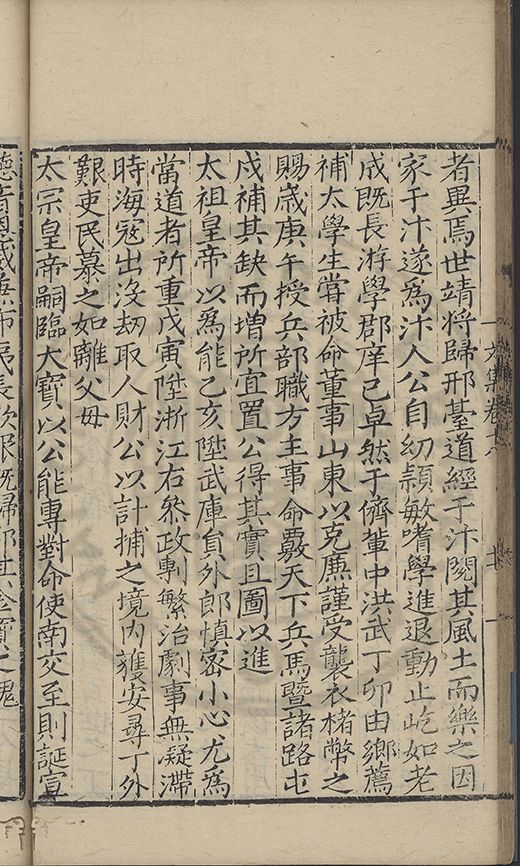 者異焉世靖將歸邢臺道經于汴閱其風土而樂之因
家于汴遂為汴人公自幼穎敏嗜學進退動止屹如老
成既長游學郡庠已卓然于儕輩中洪武丁卯由鄉薦
補太學生嘗被命董事山東以克廉謹受襲衣楮幣之
賜歲庚午授兵部職方主事命覈天下兵馬暨諸路屯
戍補其缺而增所宜置公得其實且圖以進
太祖皇帝以為能乙亥陞武庫員外郎慎密小心尤為
當道者所重戊寅陞浙江右叅政剸繁治劇事無凝滯
時海冦出沒劫取人財公以計捕之境內獲安尋丁外
艱吏民慕之如離父母
太宗皇帝嗣臨大寶以公能專對命使南交至則誕宣